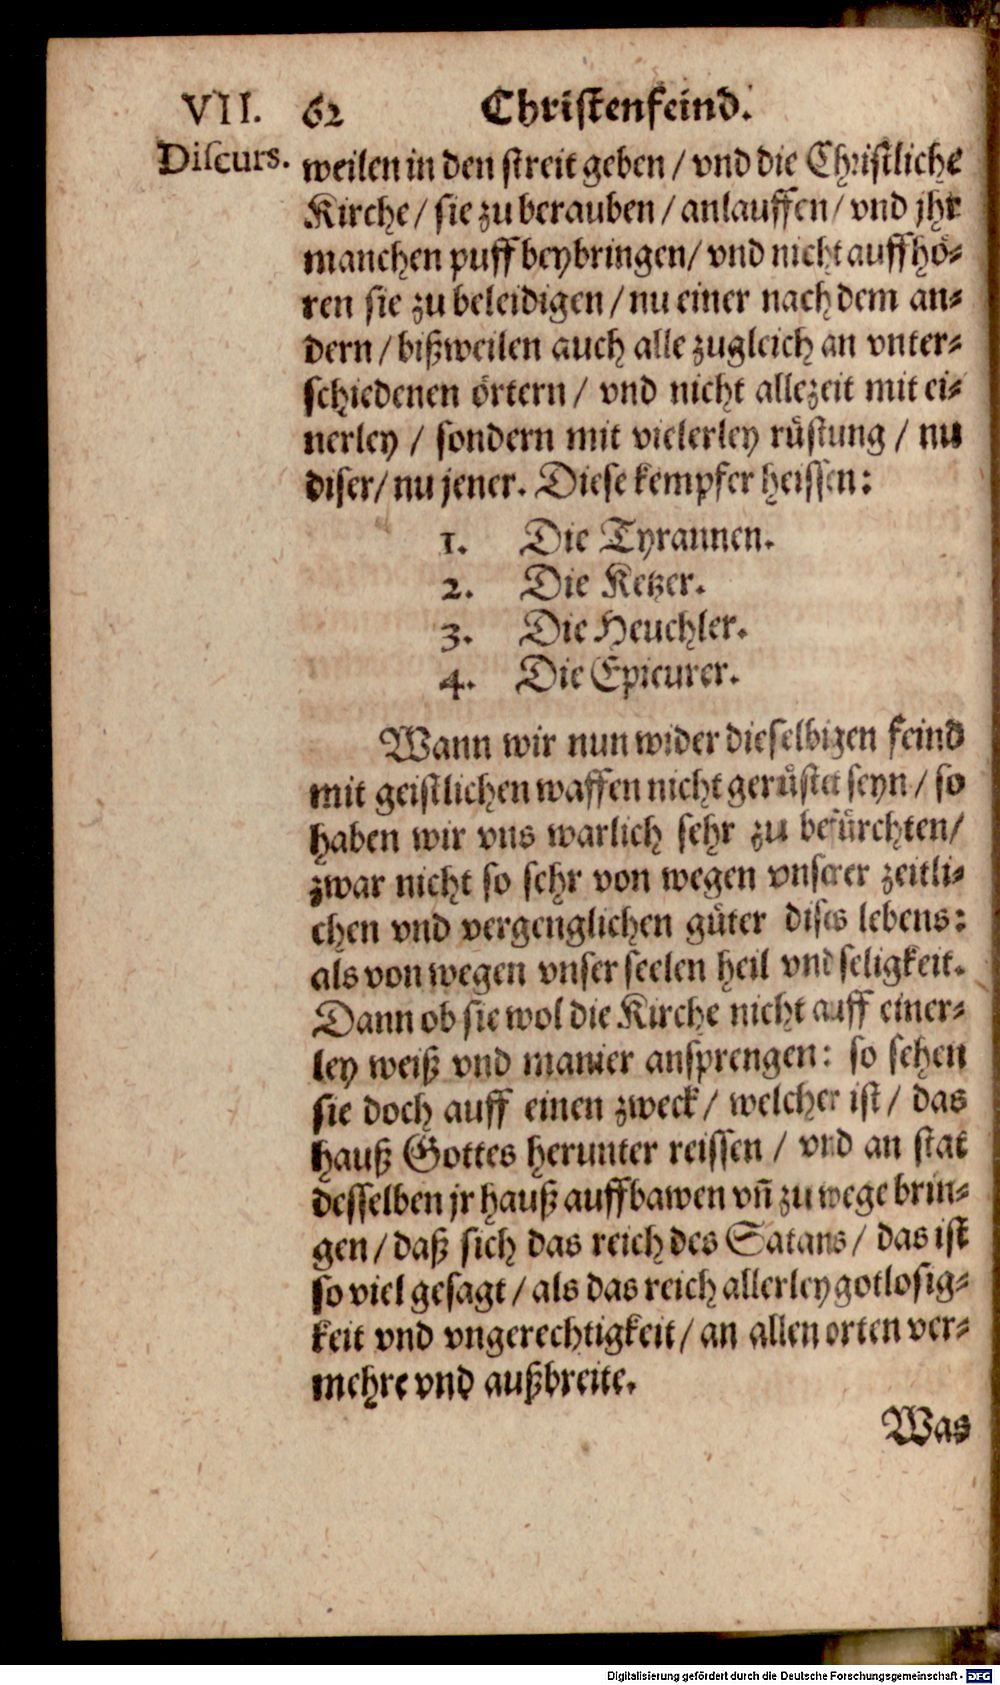 VII. 62 Christenfeind.
Discurs. weilen in den streit geben / vnd die Christliche
Kirche / sie zu berauben / anlauffen / vnd jhr
manchen puff beybringen / vnd nicht auffhö⸗
ren sie zu beleidigen / nu einer nach dem an⸗
dern / bißweilen auch alle zugleich an vnter⸗
schiedenen örtern / vnd nicht allezeit mit ei⸗
nerley / sondern mit vielerley rüstung / nu
diser / nu jener. Diese kempfer heissen:
1. Die Tyrannen.
2. Die Ketzer.
3. Die Heuchler.
4. Die Epicurer.
Wann wir nun wider dieselbigen feind
mit geistlichen waffen nicht gerüstet seyn / so
haben wir vns warlich sehr zu befürchten /
zwar nicht so sehr von wegen vnserer zeitli⸗
chen vnd vergenglichen güter dises lebens:
als von wegen vnser seelen heil vnd seligkeit.
Dann ob sie wol die Kirche nicht auff einer⸗
ley weiß vnd manier ansprengen: so sehen
sie doch auff einen zweck / welcher ist / das
hauß Gottes herunter reissen / vnd an stat
desselben jr hauß auffbawen vn̄ zu wege brin⸗
gen / daß sich das reich des Satans / das ist
so viel gesagt / als das reich allerley gotlosig⸗
keit vnd vngerechtigkeit / an allen orten ver⸗
mehre vnd außbreite.
Was
Digitalisierung gefördert durch die Deutsche Forschungsgemeinschaft - DFG